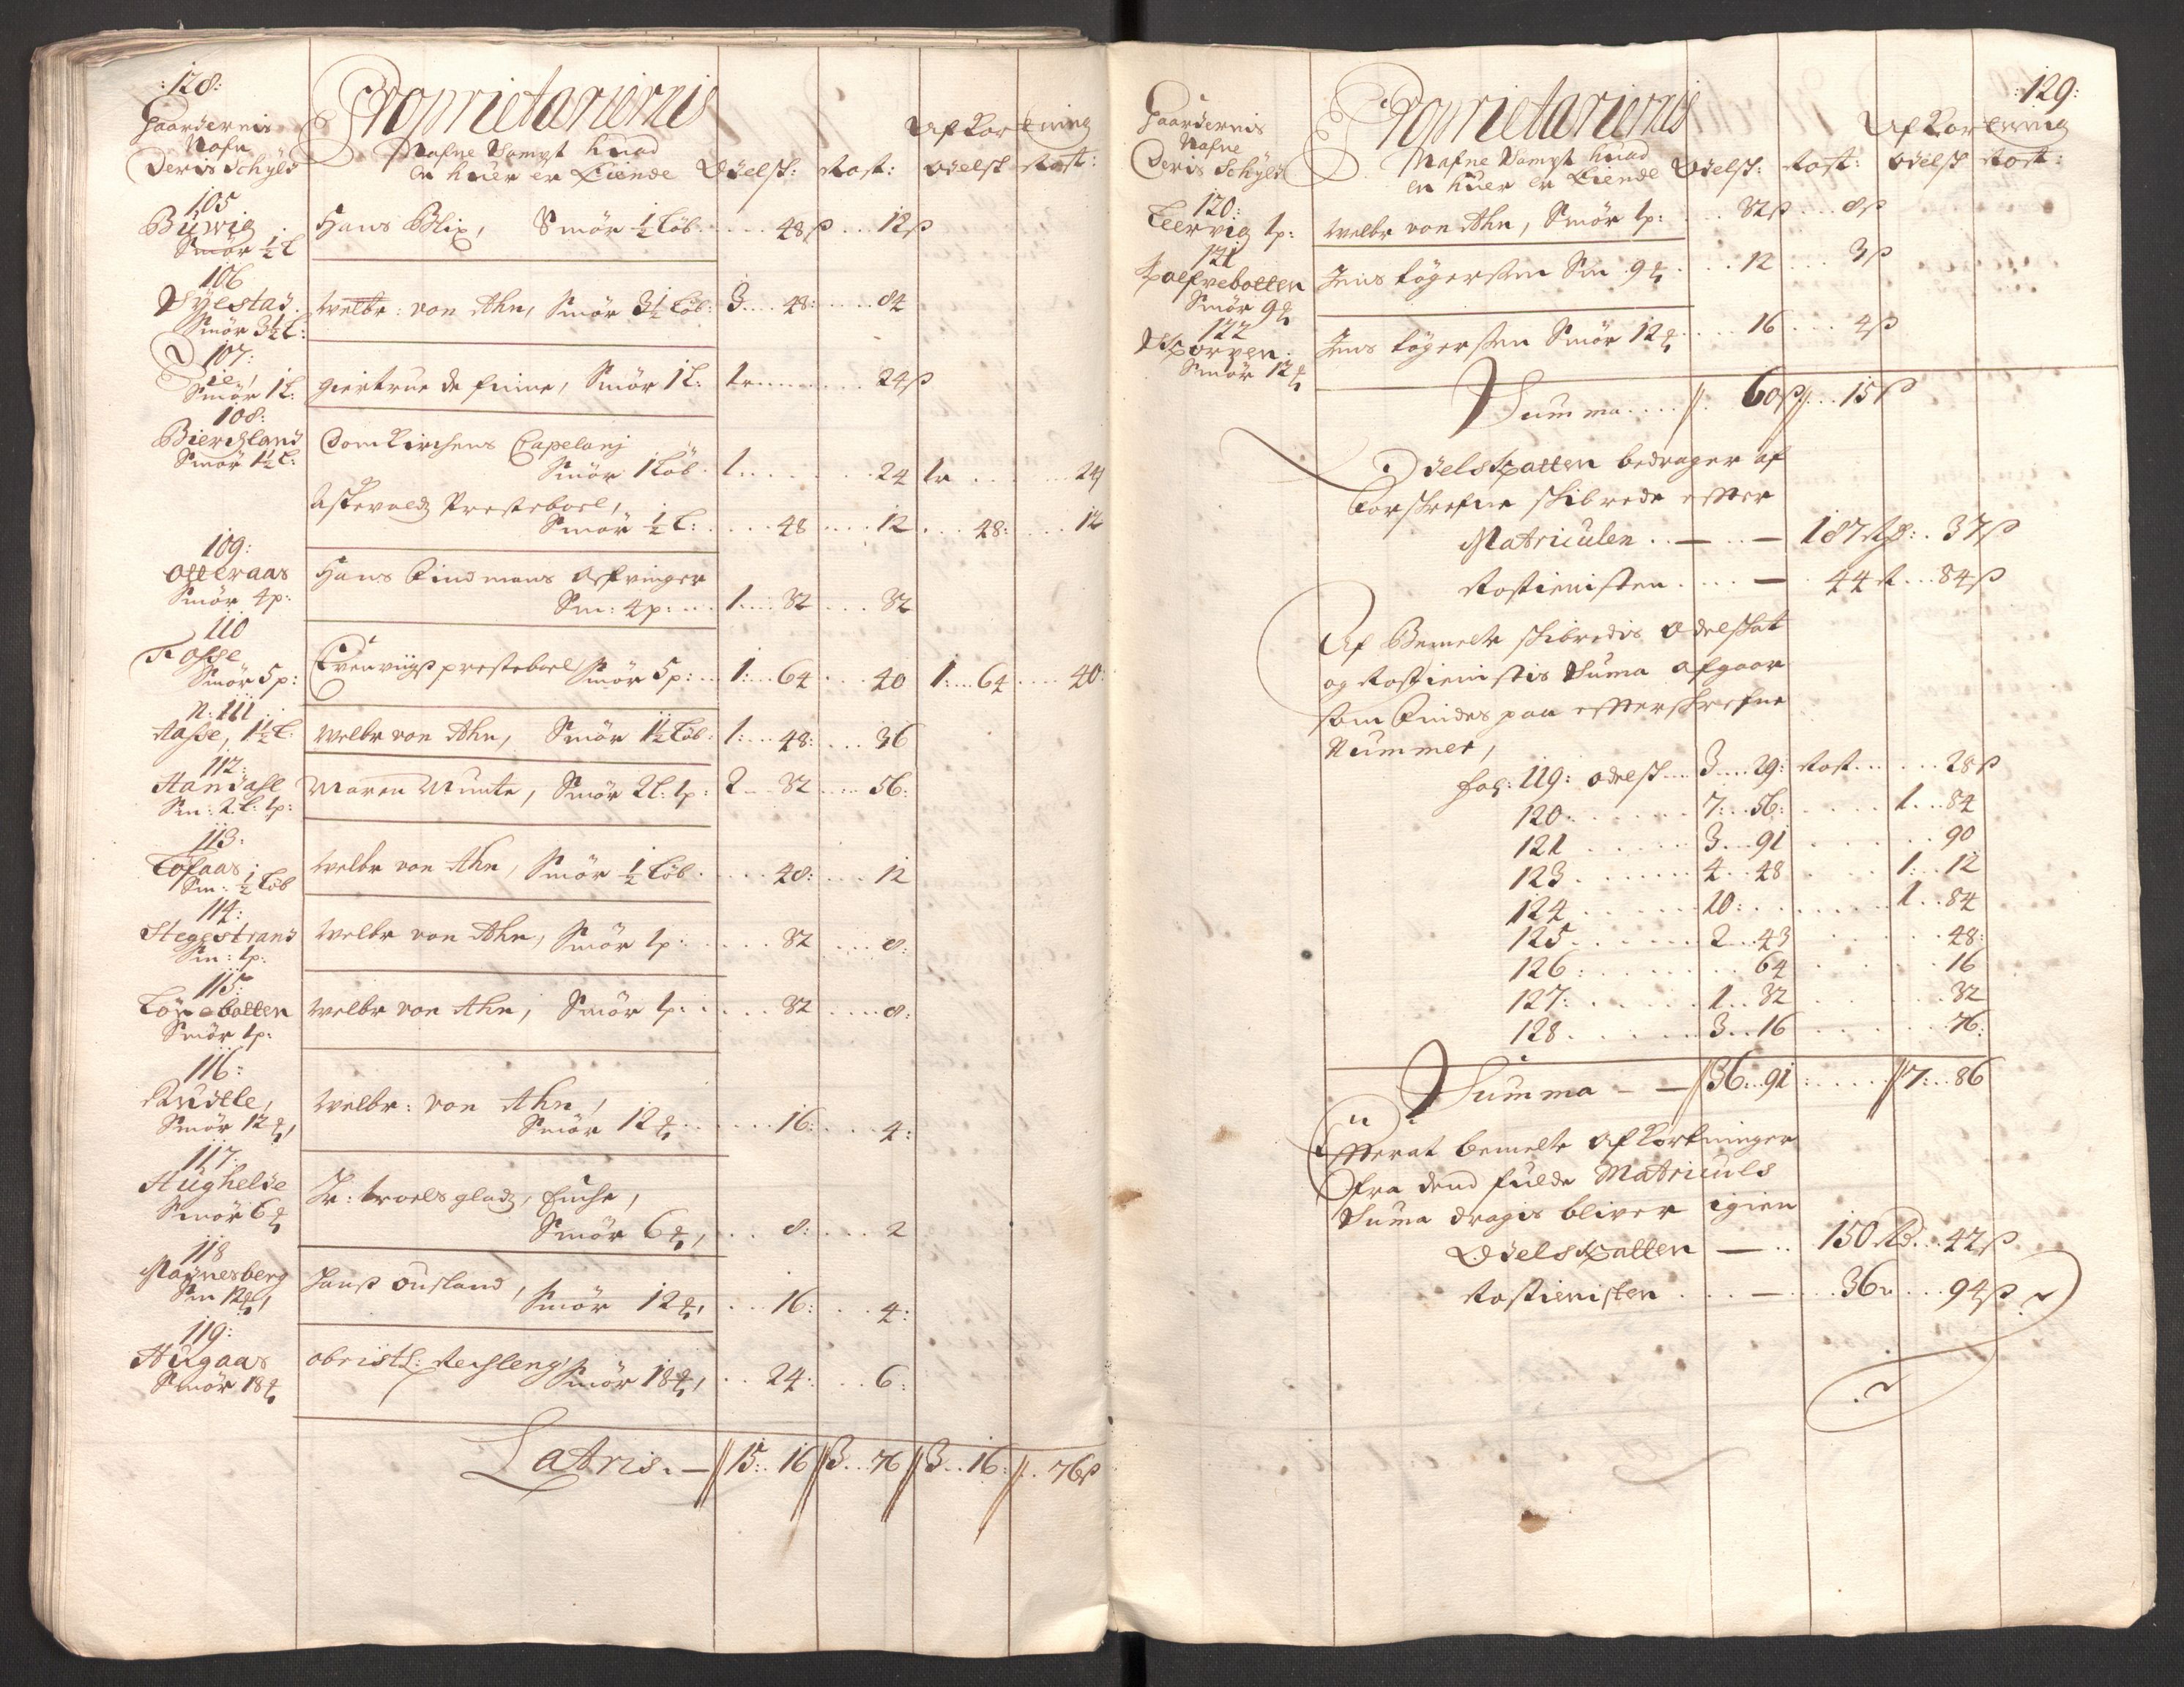 :128:
Gaardernis
Nafn
Deris Schyld
Proprietariernis
Nafne Sampt huad
en huer er Eiende
Odelsk: Rost:
Afkortning
odelsk Rost:
105
Buwig
Smör ½ L
Hans Blix, Smör ½ Löb . . . . 48ß . . 12ß
106
Sylestad.
Smör 3½ L:
Welbr: von Ahn, Smör 3½ Löb: 3 . . . 48: . . . . 84
107:
Lie,
Smör 1L:
giertrue de fine, Smör 1L: 1r . . . . . . . 24ß
108:
Bierchland
Smör 1½ L:
Domkirchens Capelanj
Smör 1 Löb: 1 . . . . . . . 24 1r . . . . 24
Askevolds Presteboel,
Smör ½ L: . . . 48 . . . 12 . . . 48: . . . 12
109:
Otteraas
Smör 4p:
Hans Findmans Arfvinger
Sm: 4p: . . . 1: . . . 32 . . . 32
110
Fosse
Smör 5p:
Evenviigs presteboel Smör 5p: . . 1: . . . 64 . . . 40 1: . . . 64 . . . 40:
N: 111
Aasse, 1½ L:
Welbr von Ahn, Smör 1½ Löb: 1: . . . 48: . . . 36
112:
Handahl
Sm: 2.L: 1p:
Maren Munte, Smör 2L: 1p: 2 . . . 32 . . . . 56:
113:
Löfaas
Sm: ½ Löb
Welbr von Ahn, Smör ½ Löb: . . . 48: . . . 12
114:
Stegestrand
Sm: 1p:
Welbr von Ahn, Smör 1p: . . . . . 32 . . . 8:
115:
Lönebotten
Smör 1p:
Welbr von Ahn, Smör 1p: . . . . . 32 . . . . 8:
116:
Rudtle,
Smör 12
Welbr: von Ahn,
Smör 12 . . . . . . 16: . . . . 4:
117:
Hughelde
Smör 6
Sr: troels glad,
Smör 6, . . 8: . . . . 2
118
Maÿnesberg
Sm 12
Hanß ousland,
Smör 12, . . . 16: . . . 4:
119:
Hugaas
Smör 18
obristl: Rechleng
Smör 18, . . 24: . . . 6:
Latris. — 15: . 16 3 . . 76 3 . . 16: . . 76ß
:129:
Gaardernis
Nafne
Deris Schyld
Proprietariernis
Nafne Sampt huad
en huer er Eiende
Odelsk: Rost:
Afkortning
odelsk Rost:
120:
Leervig 1p:
Welbr von Ahn, Smör 1p: . . . 32ß . . . 8ß
121
Kalfvebotten
Smör 9
Jens tögersen Sm 9 . . . 12 . . . . 3ß
122
Skorpen.
Smör 12
Jens tögersen Smör 12 . . . 16 . . . 4ß
Summa . . . . 60ß . . . 15ß
Odelskatten bedrager af
forskrefne skibrede efter
Matriculen . . — . . — 187 Rd: . 37ß
Rostienisten . . . . — . 44 R . . . 84ß
Af Bemelte skibredis odelskat
og Rostienistis Suma afgaar
som findes paa efterskrefne
Nummer,
fol: 119: odelsk . . . 3 . . . 29: Rost . . . . . 28ß
120: . . . . . . 7: . . 56: . . . . . 1 . . . 84
121 . . . . . . 3 . . . 91 . . . . . . 90
123 . . . . . . 4 . . 48 . . . . . 1: . . 12
124 . . . . . . 10: . . . . . . . 1 . . . 84
125 . . . . . . 2 . . . 43 . . . . . . 48:
126: . . . . . . . 64 . . . . . . 16
127: . . . . . . 1 . . 32 . . . . . . 32
128 . . . . . . 3 . . 16 . . . . . . 76:
Summa — — 36 . . 91: . . . . . 7: . . 86
Efterat bemelte afkortninger
fra dend fulde Matriculs
Suma dragis bliver igien
Odelskatten — . . 150 Rd . . . 42ß
Rostienisten . . . — . . . 36r . . . 94ß